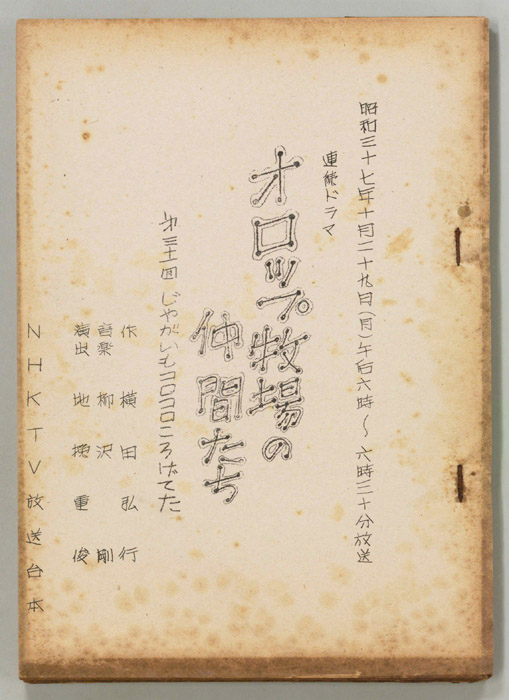 昭和三十七年十月二十九日(月)午后六時〜六時三十分放送
連続ドラマ
オロップ牧場の
仲間たち
才三十一回 じゃがいもコロコロころげてた
作 横田弘行
音楽 柳沢剛
演出 地挽重俊
NHKTV放送台本